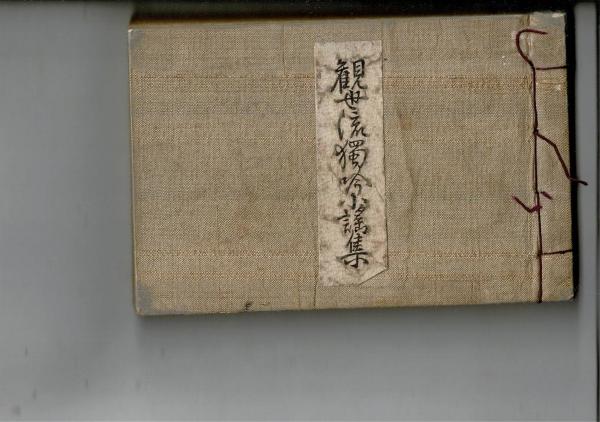 観世流獨吟小謡集